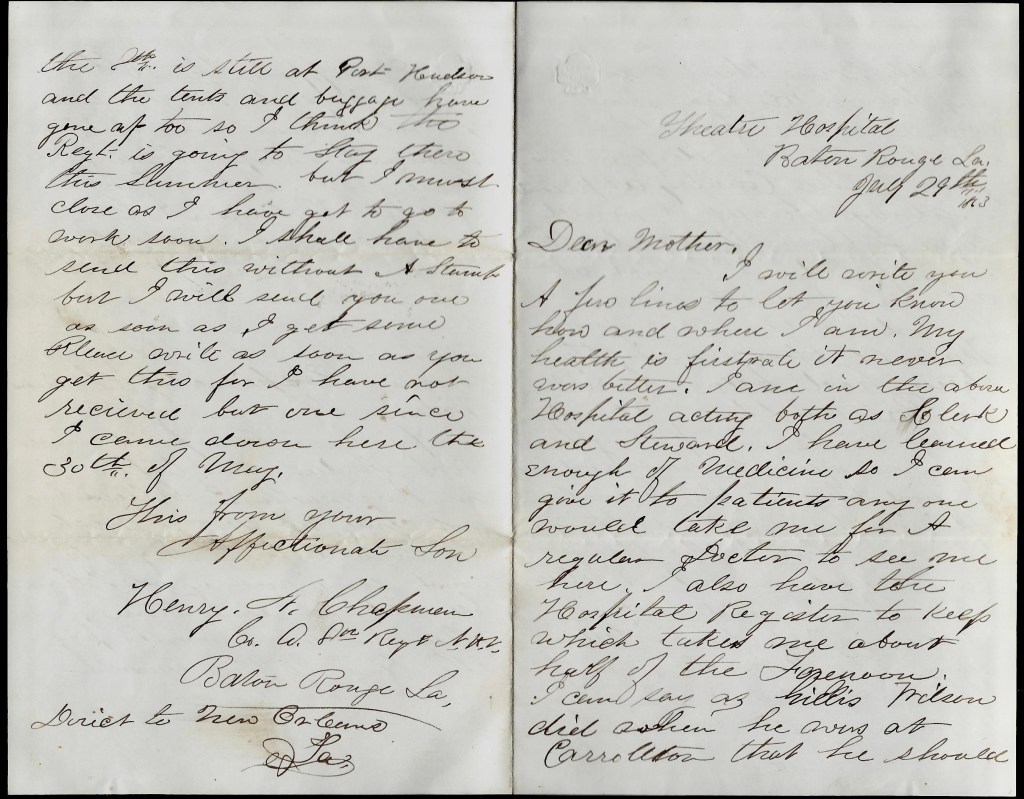 Theatre Hospital
Baton Rouge La.
July 29th 1863
Dear Mother.
I will write you
A few lines to let you know
how and where I am. My
health is firstrate it never
was better. I am in the above
Hospital acting both as Clerk
and Steward. I have learned
enough of Medicine so I can
give it to patients any one
would take me for A
regular Docter to see me
here. I also have the
Hospital Register to keep
which takes me about
half of the Forenoon.
I can say as Willis Wilson
did when he was at
Carrollton that he should
the 8th. is still at Port Hudson
and the tents and baggage have
gone up too so I think the
Regt. is going to Stay there
this Summer. but I must
close as I have got to go to
work soon. I shall have to
send this without A Stamp
but I will send you one
as soon as I get some
Please write as soon as you
get this for I have not
recieved but one since
I came down here the
30th. of May.
This from your
Affectionate Son
Henry. N. Chapman
Co. A. 8th Regt N.H.V.
Baton Rouge La,
Direct to New Orleans
La